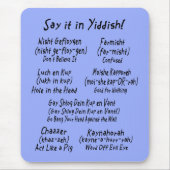 Say it in Yiddish!
Nisht Gefloygen
(nisht ge-floy-gen)
Don't Believe It
Farmisht
(far-misht)
Confused
Loch en Kup
(lakh en kup)
Hole in the Head
Moishe Kapoyr
(moi-she kap-oyr)
Good For Nothing
Gay Shlog Dein Kup en Vant
(Gay Shlog Dein Kup en Vant)
Go Bang Your Head Against the Wall
Chazzer
(khaz-zer)
Act Like a Pig
Kaynahorah
(kayn-ah-hor-ah)
Ward Off Evil Eye